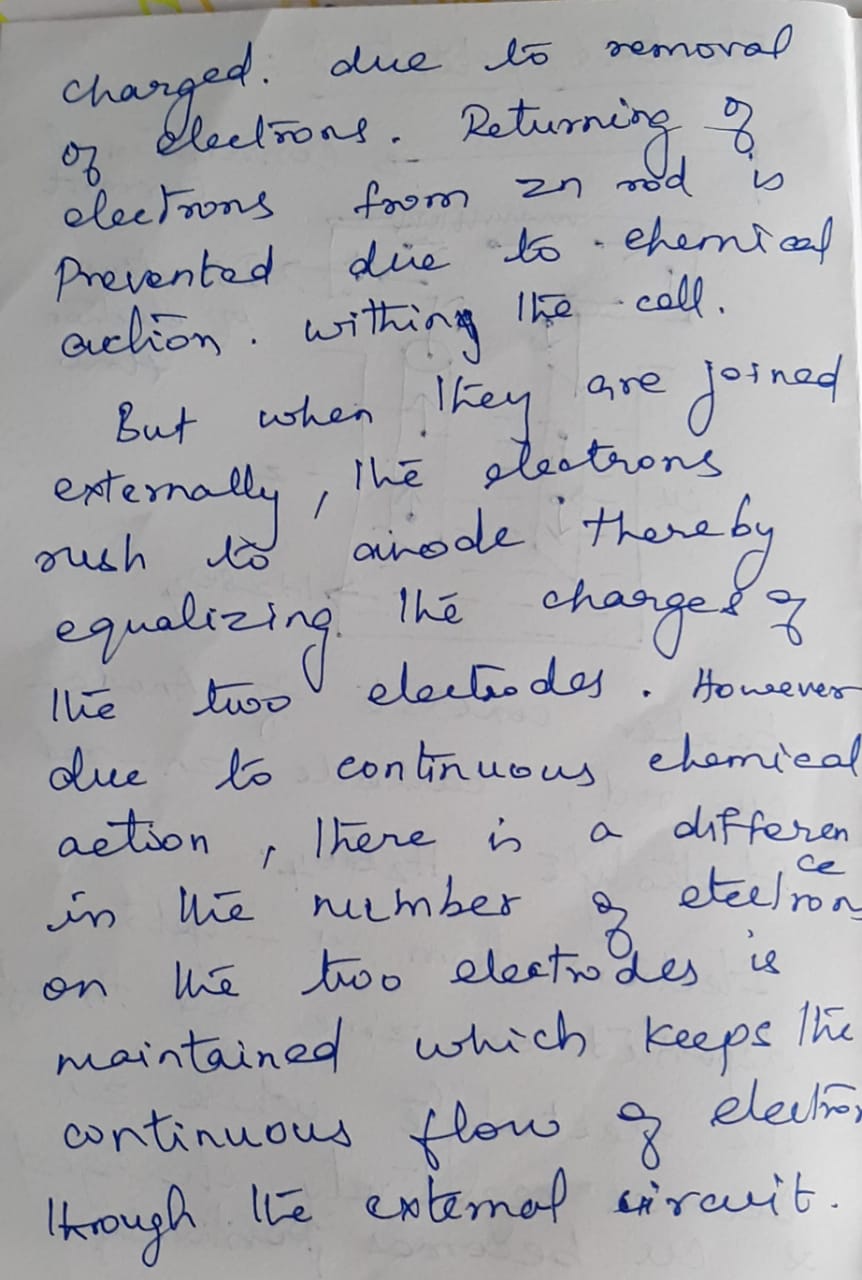 charged. due to removal
of electrons. Returning of
electrons from zn rod is
Prevented due to chemical
action. withing the cell.
But when they are joined
externally, the electrons
rush to anode thereby
equalizing the charges of
the two electrodes. However
due to continuous chemical
action, there is a differen
ce
in the number of eteelron
on the two electrodes is
maintained which keeps the
continuous flow of electron
through the external circuit.